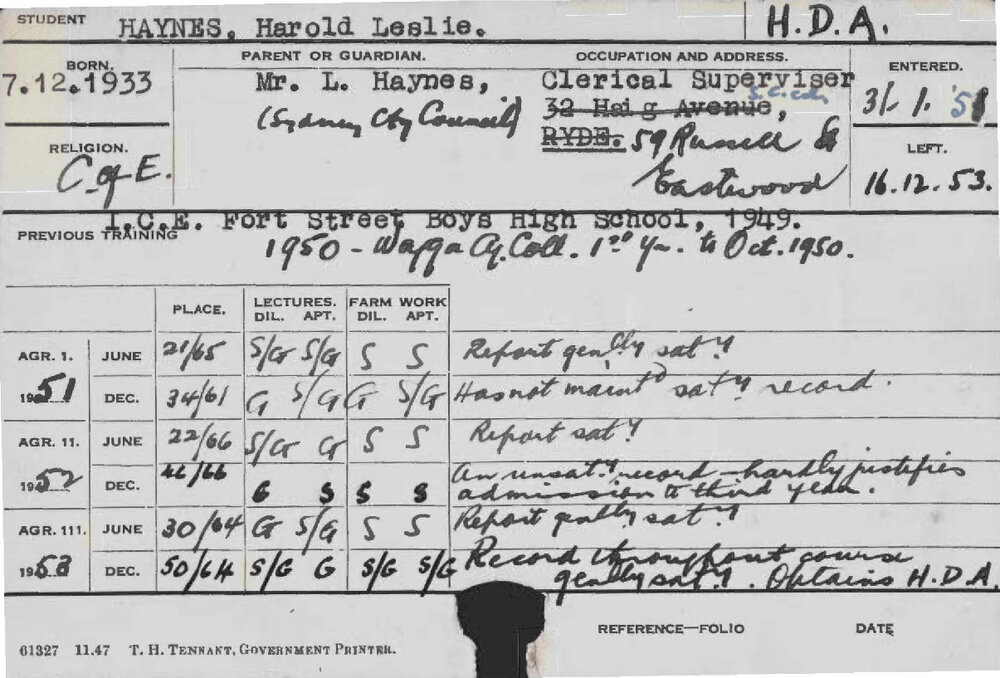 STUDENT HAYNES, Harold Leslie. H.D.A.
BORN. PARENT OR GUARDIAN. OCCUPATION AND ADDRESS. ENTERED.
7.12.1933 Mr. L. Haynes, Clerical Superviser 31.1.'51
(Sydney City Council) 32 Haig Avenue,
RYDE. 59 Russell St
RELIGION. LEFT.
C. of E. Eastwood 16.12.53.
PREVIOUS TRAINING I.C.E. Fort Street Boys High School, 1949.
1950 - Wagga Ag. Coll. 1st Yr. to Oct. 1950.
PLACE. LECTURES. FARM WORK
DIL. APT. DIL. APT.
AGR. 1. JUNE 21/65 S/G S/G S S Report genlly sat'y
1951 DEC. 34/61 G S/G G S/G Has not maintd sat'y record.
AGR. 11. JUNE 22/66 S/G G S S Report sat'y
1952 DEC. 46/66 G S S S An unsat'y record - hardly justifies
admission to third year.
AGR. 111. JUNE 30/64 G S/G S S Report genlly sat'y
1953 DEC. 50/64 S/G G S/G S/G Record throughout course
genlly sat'y. Obtains H.D.A.
REFERENCE—FOLIO DATE
61327 11.47 T. H. TENNANT, GOVERNMENT PRINTER.